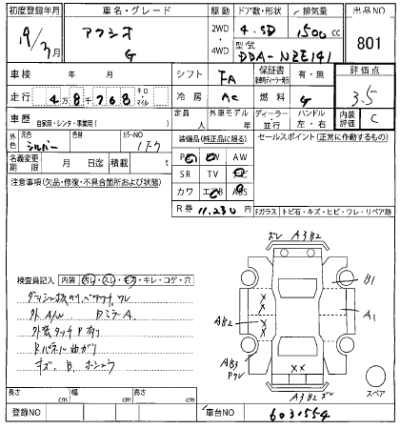 初度登録年月 車名・グレード 駆動 ドア数・形状 排気量 出品NO
19/3月 アクシオ G 2WD 4WD 4.SD 1500cc 801
型式 DBA-NZE141
車検 年 月 シフト FA 保証書 有・無 評価点 3.5
走行 4万8千768 キロ マイル 冷房 AC 燃料 G 内装評価 C
車歴 自家用・レンタ・事業用( ) 定員 人 外車モデル 年 ディーラー・並行 ハンドル 左・右
外色 元色 シルバー カラーNO 1F7 装備品(純正品に限る) セールスポイント(正常に作動するもの)
名義変更期限 月 日迄 積載 t
PS PW AW
SR TV ナビ
カワ エアB ABS
R券 11.230円
注意事項(欠品・修復・不具合箇所および状態)
Fガラス トビ石・キズ・ヒビ・ワレ・リペア跡
ボレ A3B2
検査員記入 内装 汚レ・スレ・キズ・キレ・コゲ・穴
外 A/W Dミラー A.
外装タッチP有り
Rパネル曲がり
キズ、B、ホシュウ
B1
A1
AB2
AB3
A3B2
スペア
長さ cm 幅 cm 高さ cm
登録NO 車台NO 6031554